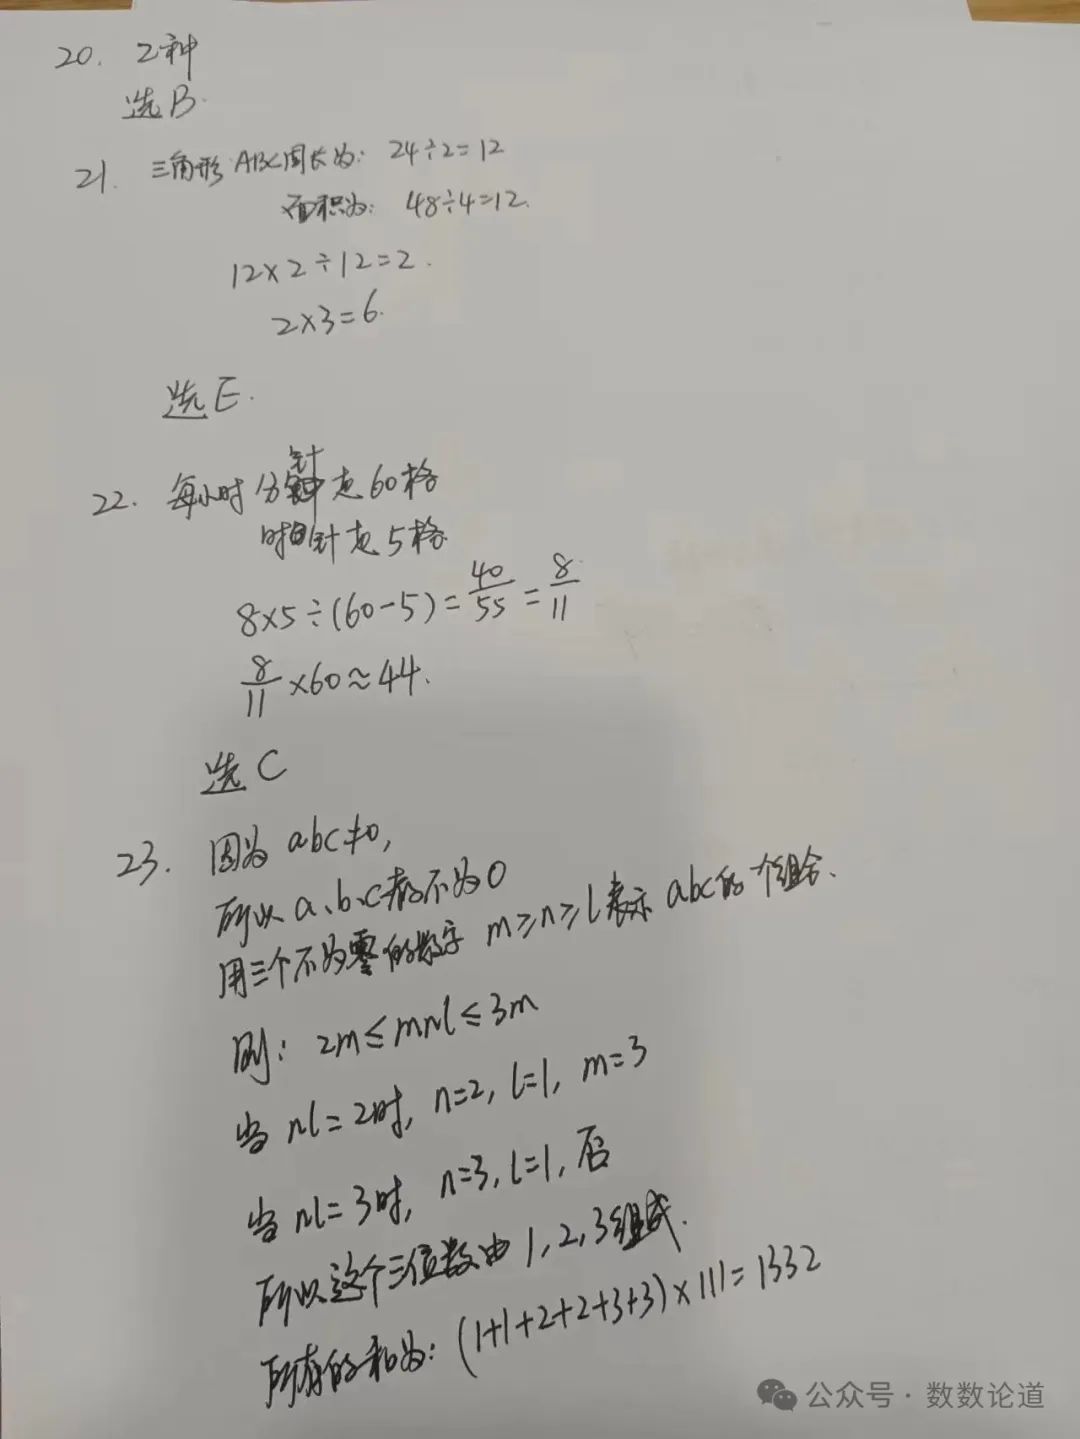 20. 2种
选B.
21. 三角形ABC周长为: 24÷2=12
面积为: 48÷4=12.
12×2÷12=2.
2×3=6.
选E.
22. 每小时分针走60格
时针走5格
8×5÷(60-5)=40/55=8/11
8/11×60≈44.
选C
23. 因为abc≠0,
所以a、b、c都不为0
用三个不为零的数字 m≥n≥l表示abc的一个组合.
则: 2m≤mnl≤3m
当nl=2时, n=2, l=1, m=3
当nl=3时, n=3, l=1, 否
所以这个三位数由1,2,3组成.
所有的和为: (1+1+2+2+3+3)×111=1332
公众号·数数论道